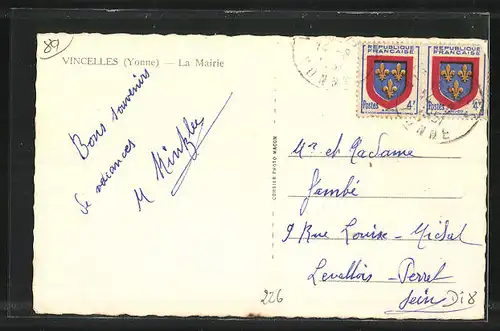 89
VINCELLES (Yonne) — La Mairie
REPUBLIQUE FRANÇAISE
Postes 4F
REPUBLIQUE FRANÇAISE
Postes 4F
YONNE
Bons souvenirs
de vacances
M
CORDIER PHOTO MACON
Mr et Madame
9 Rue Louise-Michel
Levallois-Perret
Sein
226